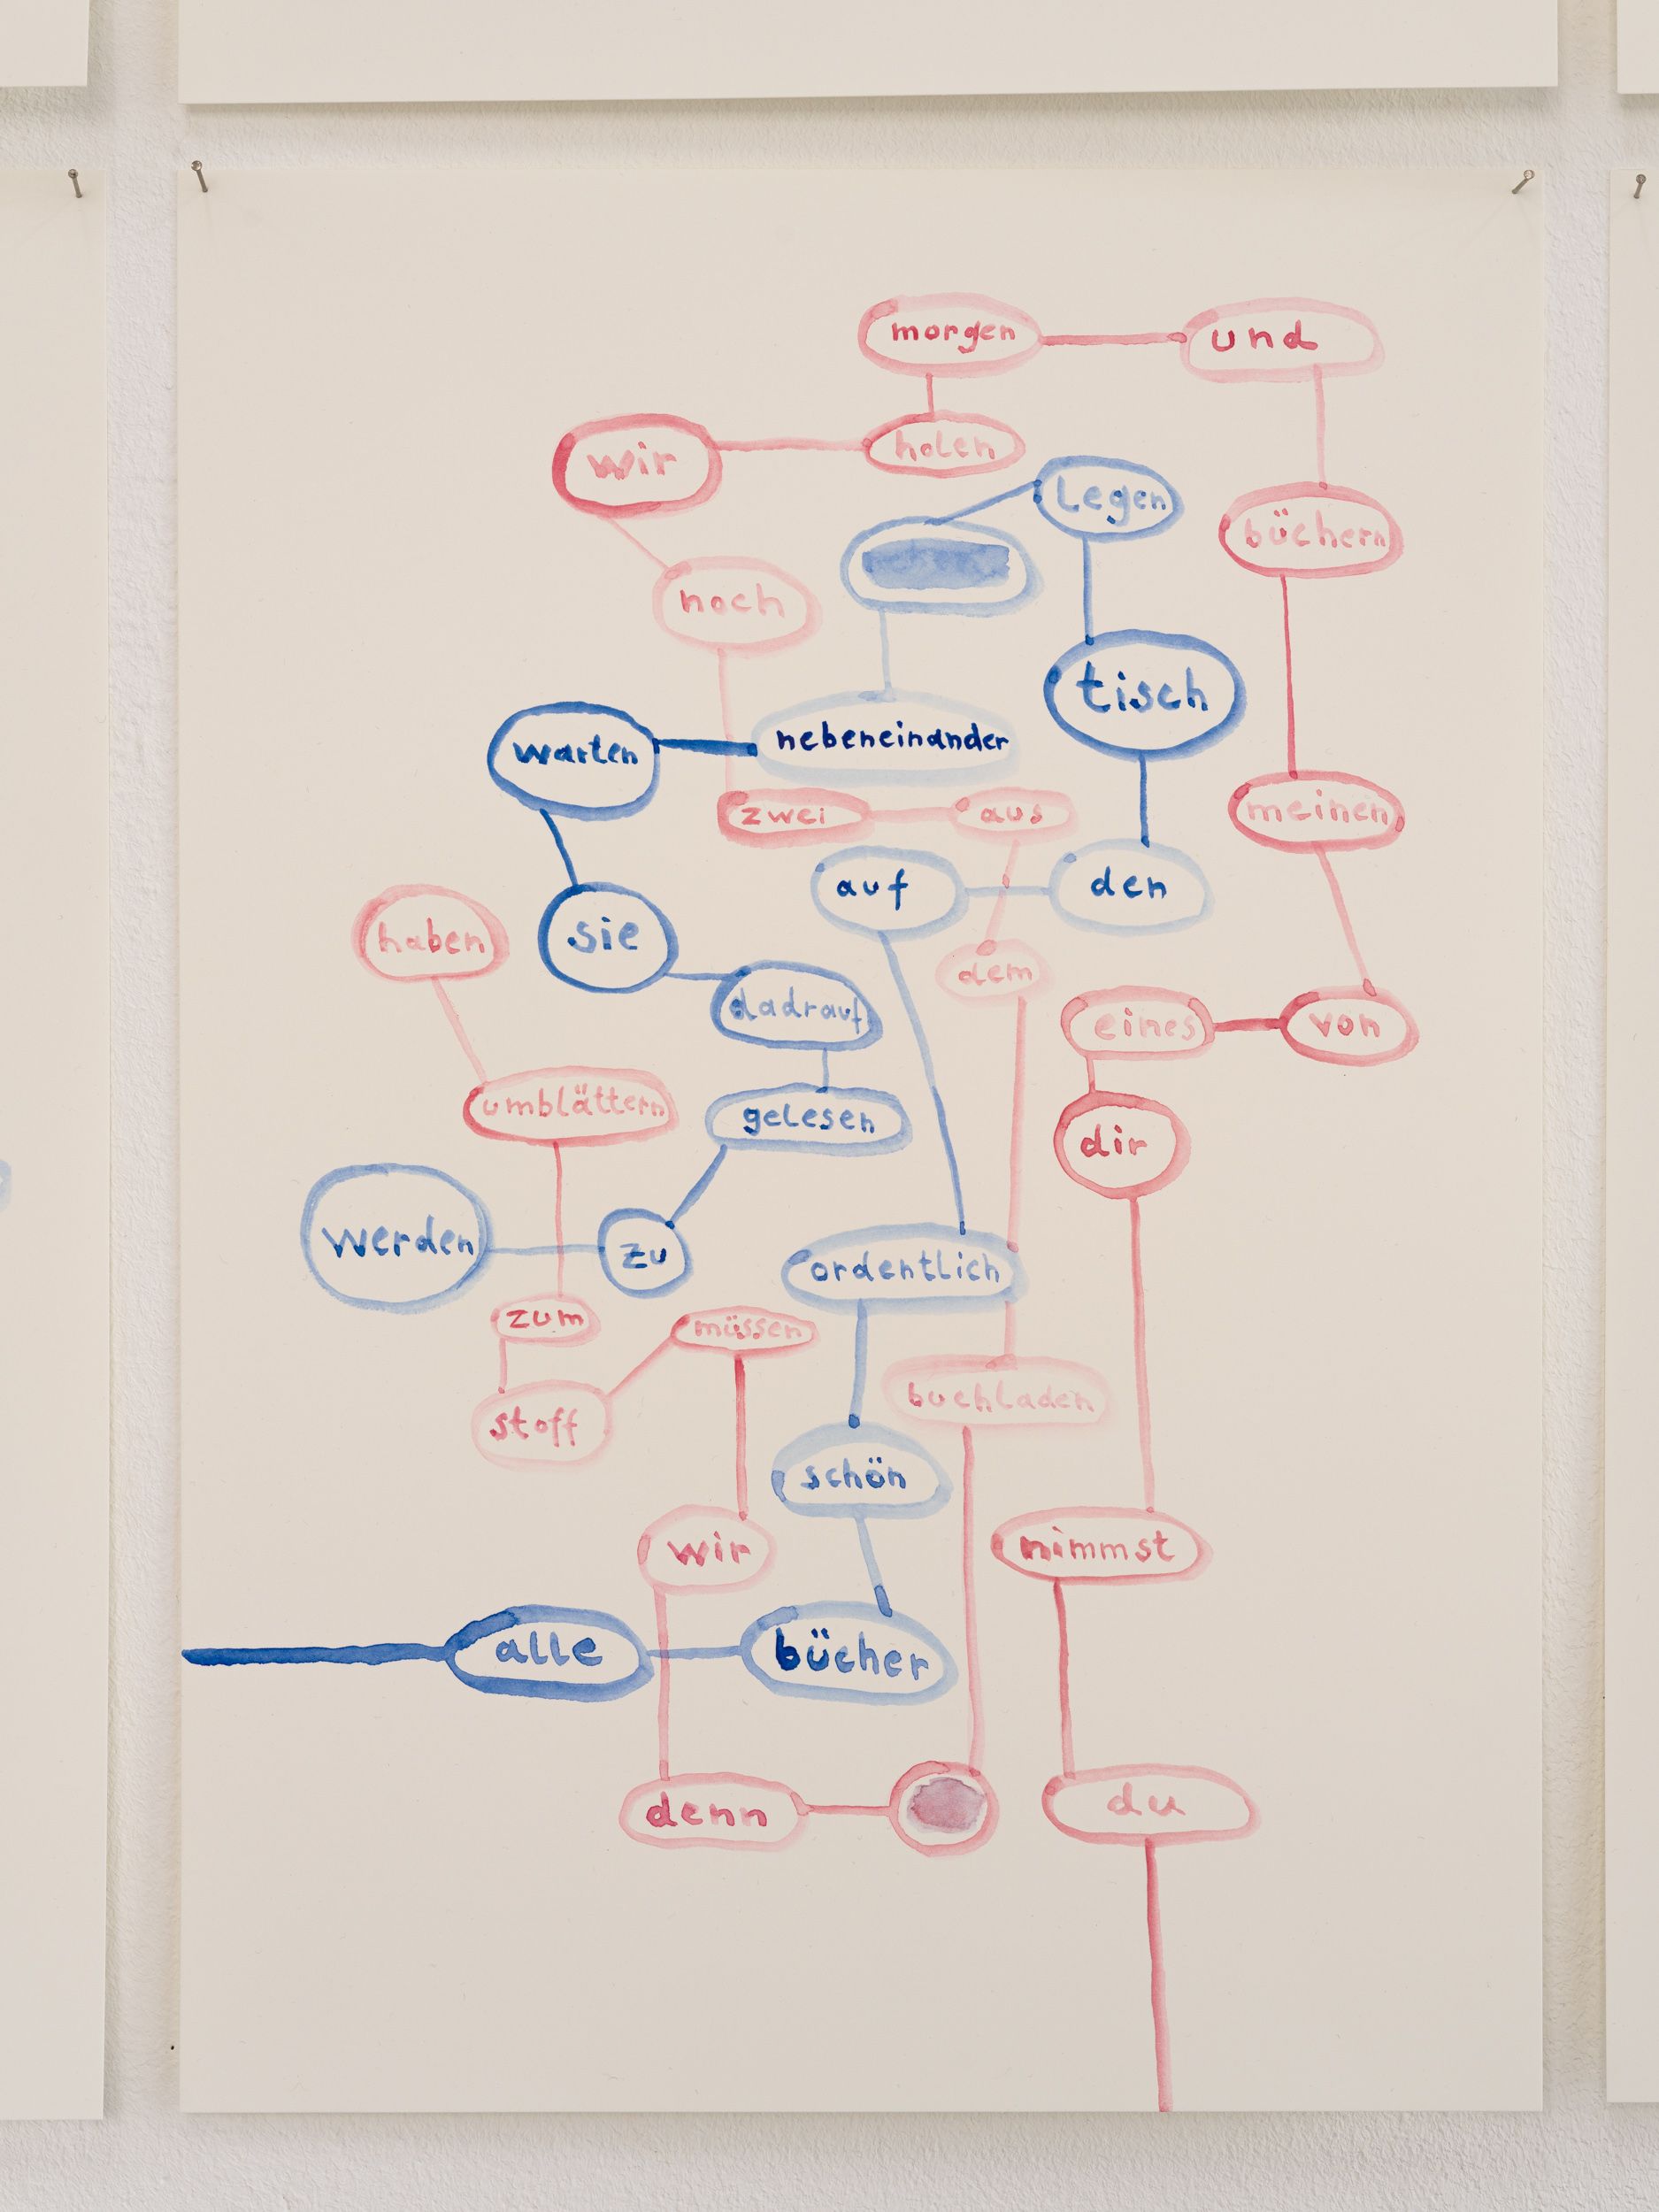 alle
bücher
schön
ordentlich
auf
den
tisch
legen
nebeneinander
warten
sie
dadrauf
gelesen
zu
werden
du
nimmst
dir
eines
von
meinen
büchern
und
morgen
holen
wir
noch
zwei
aus
dem
buchladen
denn
wir
müssen
stoff
zum
umblättern
haben